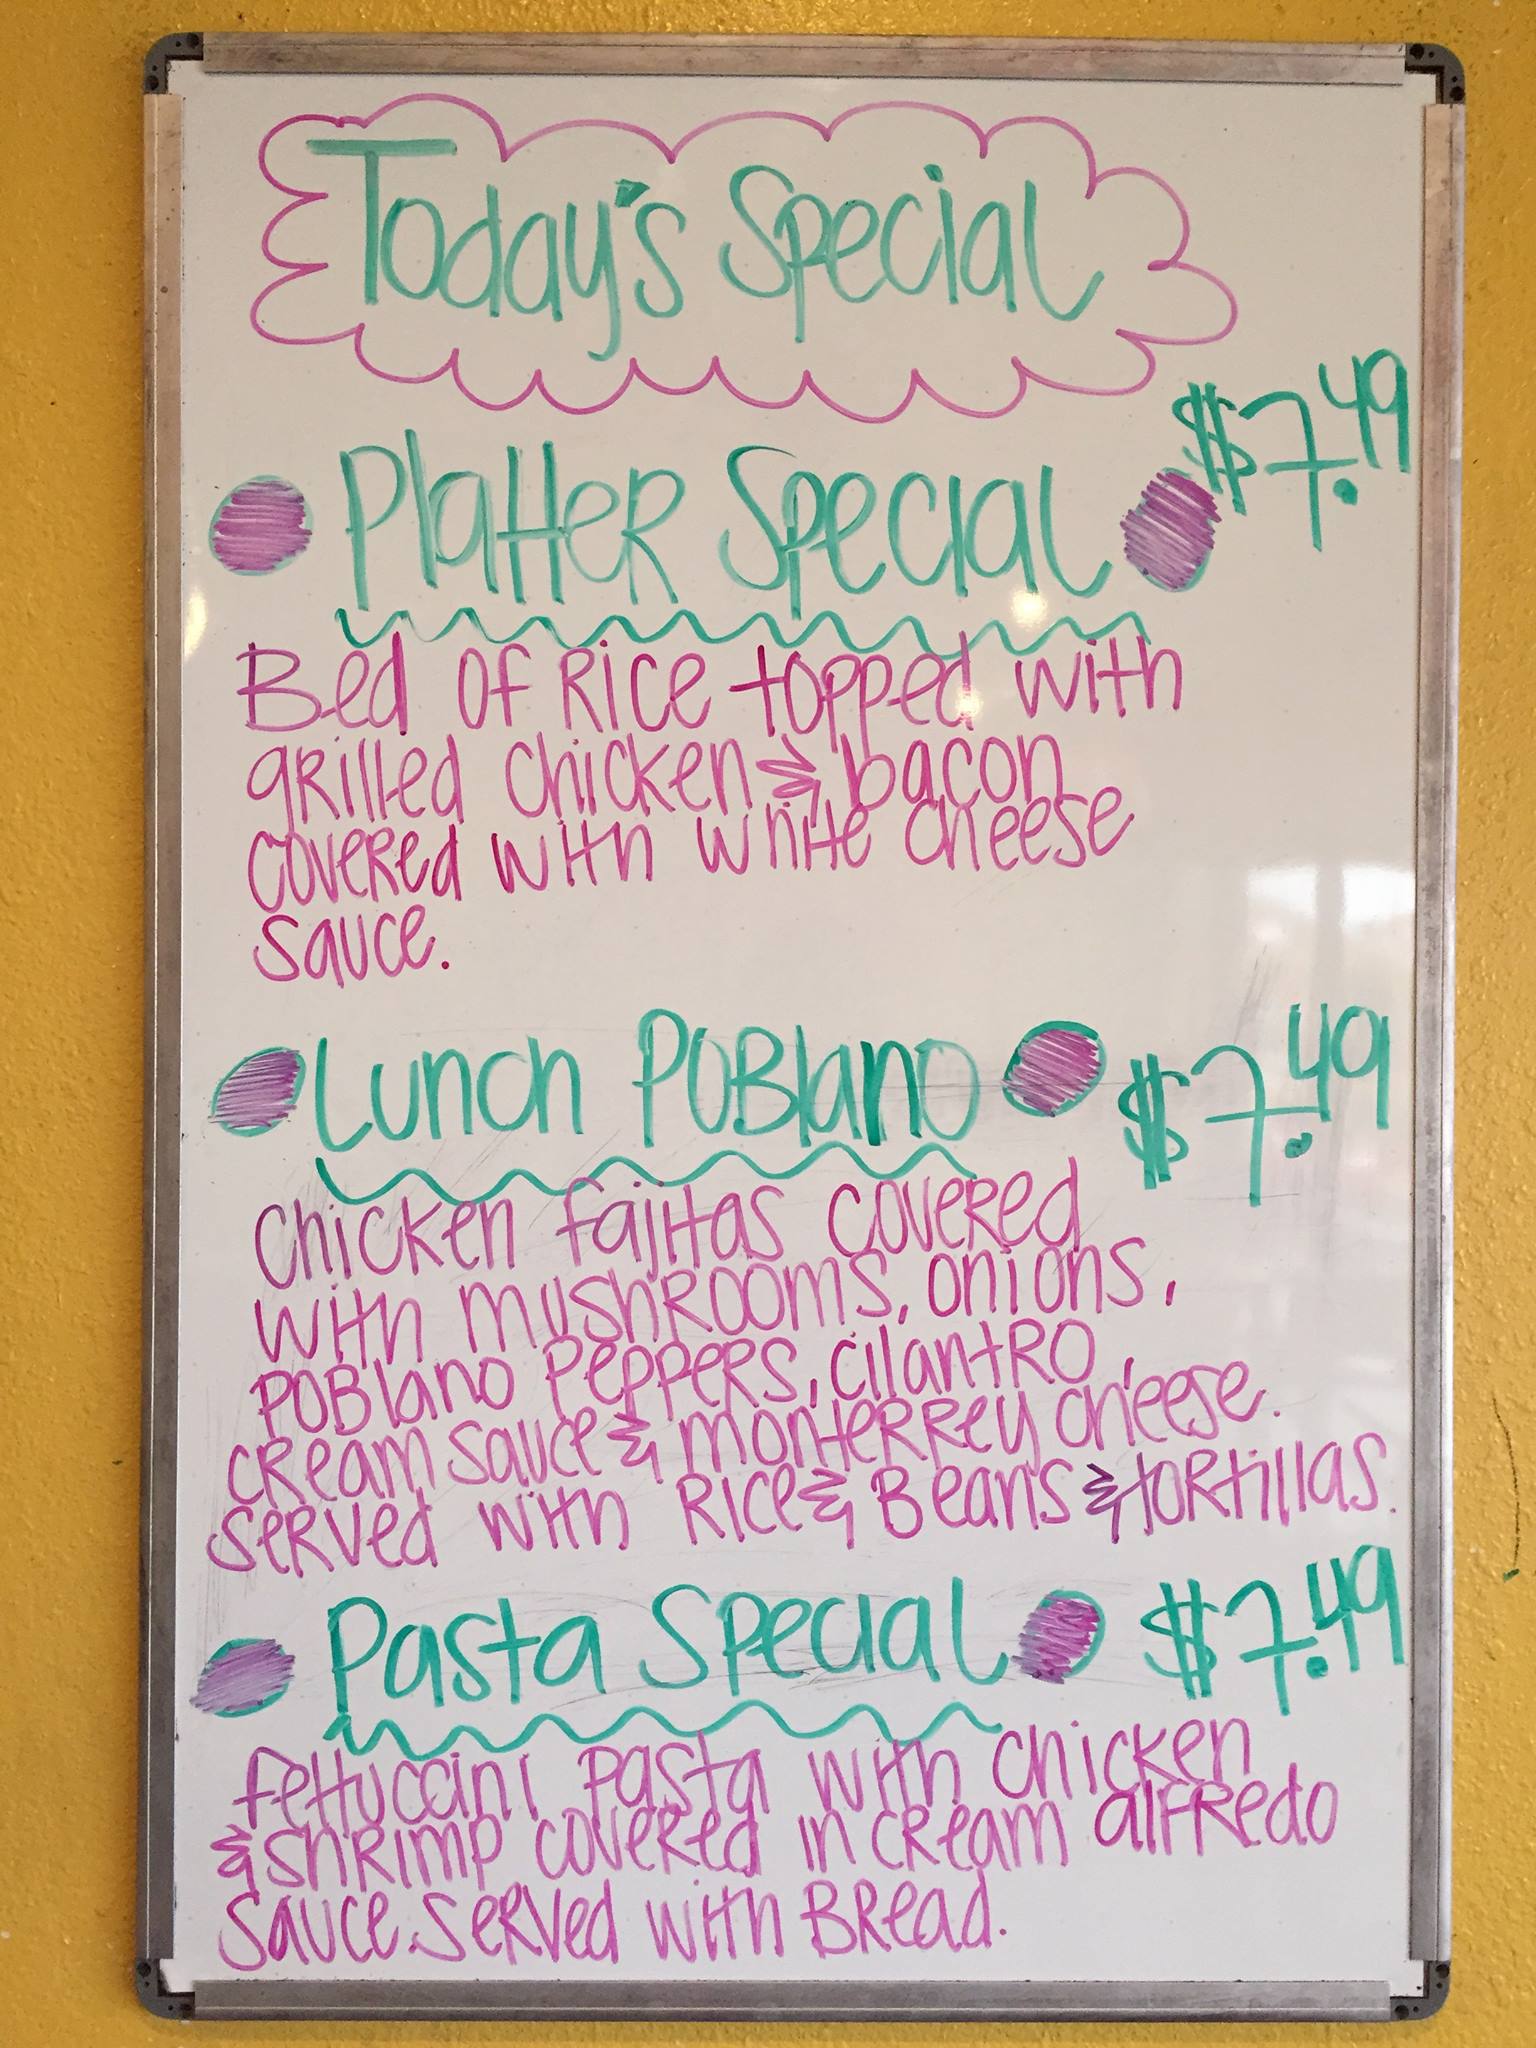 Today's Special
$7.49
Platter Special
Bed of Rice topped with
grilled chicken & bacon
covered with white cheese
sauce.
Lunch Poblano $7.49
Chicken fajitas covered
with mushrooms, onions,
Poblano Peppers, cilantro,
cream sauce & monterrey cheese.
served with Rice & Beans & tortillas.
Pasta Special $7.49
fettuccini pasta with chicken
& shrimp covered in cream alfredo
sauce. served with Bread.